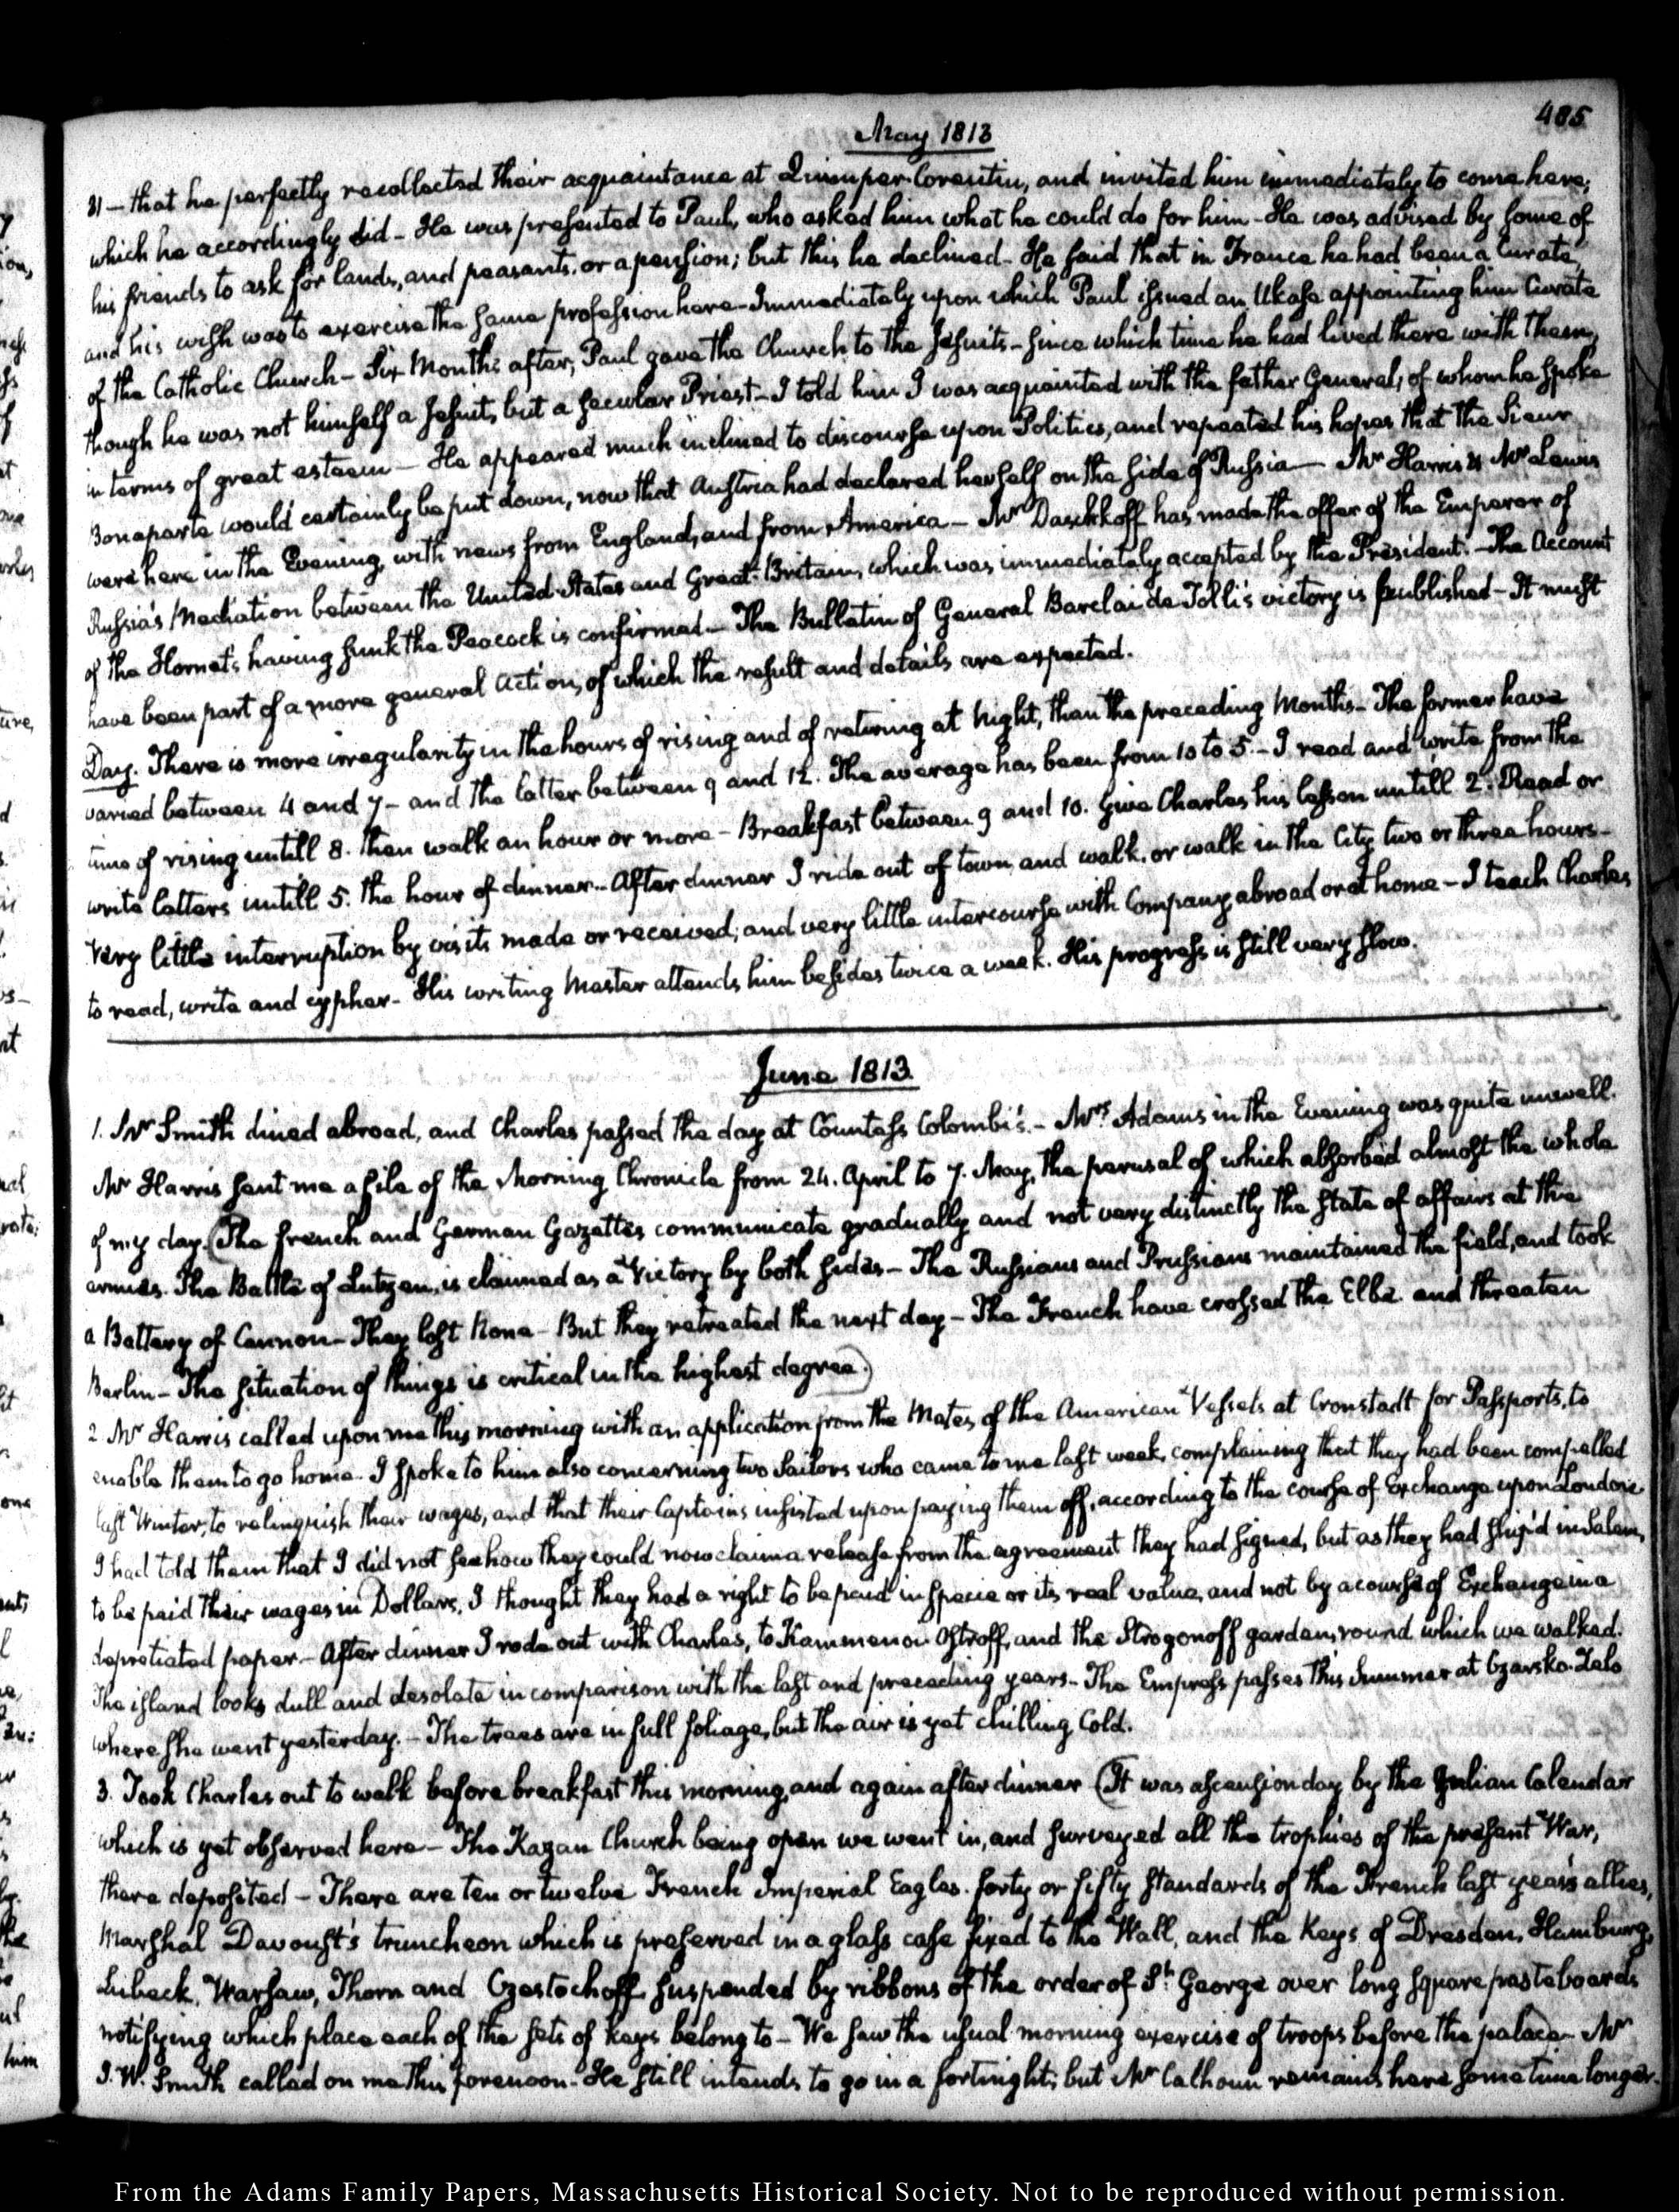 485
May 1813
31 — that he perfectly recollected their acquaintance at Quimper-Corentin, and invited him immediately to come here;
which he accordingly did - He was presented to Paul, who asked him what he could do for him - He was advised by some of
his friends to ask for lands, and peasants, or a pension; but this he declined - He said that in France he had been a Curate,
and his wish was to exercise the same profession here - Immediately upon which Paul issued an Ukase appointing him Curate
of the Catholic Church - Six Months after, Paul gave the Church to the Jesuits - since which time he had lived there with them,
though he was not himself a Jesuit, but a secular Priest - I told him I was acquainted with the father General, of whom he spoke
in terms of great esteem - He appeared much inclined to discourse upon Politics, and repeated his hopes that the Sieur
Bonaparte would certainly be put down, now that Austria had declared herself on the side of Russia — Mr Harris & Mr Lewis
were here in the Evening, with news from England, and from America - Mr Daschkoff has made the offer of the Emperor of
Russia's Mediation between the United States and Great-Britain, which was immediately accepted by the President. - The Account
of the Hornet's having sunk the Peacock is confirmed - The Bulletin of General Barclai de Tolli's victory is published - It must
have been part of a more general action, of which the result and details are expected.
Day. There is more irregularity in the hours of rising and of retiring at night, than the preceding Months - The former have
varied between 4 and 7 - and the latter between 9 and 12. The average has been from 10 to 5. - I read and write from the
time of rising untill 8. then walk an hour or more - Breakfast between 9 and 10. Give Charles his lesson untill 2. Read or
write letters untill 5. the hour of dinner - After dinner I ride out of town, and walk, or walk in the City two or three hours -
Very little interruption by visits made or received; and very little intercourse with Company abroad or at home - I teach Charles
to read, write and cypher - His writing Master attends him besides twice a week. His progress is still very slow.
June 1813.
1. Mr Smith dined abroad, and Charles passed the day at Countess Colombi's. - Mrs Adams in the Evening was quite unwell.
Mr Harris sent me a file of the Morning Chronicle from 24. April to 7. May, the perusal of which absorbed almost the whole
of my day. (The French and German Gazettes communicate gradually and not very distinctly the state of affairs at the
armies. The Battle of Lutzen, is claimed as a Victory by both sides - The Russians and Prussians maintained the field, and took
a Battery of Cannon - They lost None - But they retreated the next day - The French have crossed the Elbe and threaten
Berlin - The situation of things is critical in the highest degree.)
2. Mr Harris called upon me this morning with an application from the Mates of the American Vessels at Cronstadt for Passports, to
enable them to go home. I spoke to him also concerning two Sailors who came to me last week, complaining that they had been compelled
last Winter, to relinquish their wages, and that their Captains insisted upon paying them off, according to the course of Exchange upon London.
I had told them that I did not see how they could now claim a release from the agreement they had signed, but as they had ship'd in Salem,
to be paid their wages in Dollars, I thought they had a right to be paid in specie or its real value, and not by a course of Exchange in a
depretiated paper. - After dinner I rode out with Charles, to Kammenoi Ostroff, and the Strogonoff garden, round which we walked.
The island looks dull and desolate in comparison with the last and preceding years - The Empress passes this Summer at Czarsko-Zelo
where she went yesterday. - The trees are in full foliage, but the air is yet chilling Cold.
3. Took Charles out to walk before breakfast this morning, and again after dinner (It was ascension day by the Julian Calendar
which is yet observed here - The Kazan Church being open we went in, and surveyed all the trophies of the present War,
there deposited - There are ten or twelve French Imperial Eagles. forty or fifty standards of the French last year's allies,
Marshal Davoust's truncheon which is preserved in a glass case fixed to the Wall, and the Keys of Dresden, Hamburg,
Lubeck, Warsaw, Thorn and Czestochoff suspended by ribbons of the order of St George over long square pasteboards
notifying which place each of the sets of keys belong to - We saw the usual morning exercise of troops before the palace) - Mr
J. W. Smith called on me this forenoon - He still intends to go in a fortnight; but Mr Calhoun remains here some time longer.
From the Adams Family Papers, Massachusetts Historical Society. Not to be reproduced without permission.